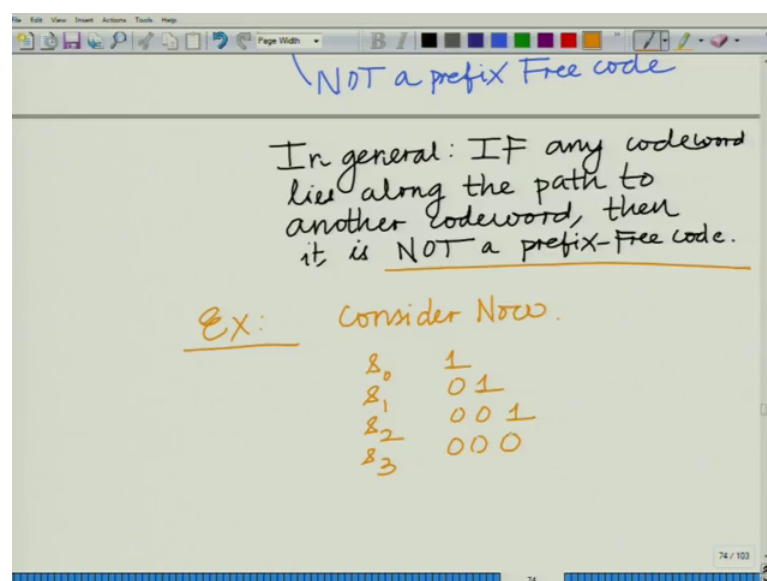 File Edit View Insert Actions Tools Help
Page Width B I
NOT a prefix Free code
In general: IF any codeword
lies along the path to
another codeword, then
it, is NOT a prefix-Free code.
Ex: Consider Now.
s0 1
s1 01
s2 001
s3 000
74 / 103
74